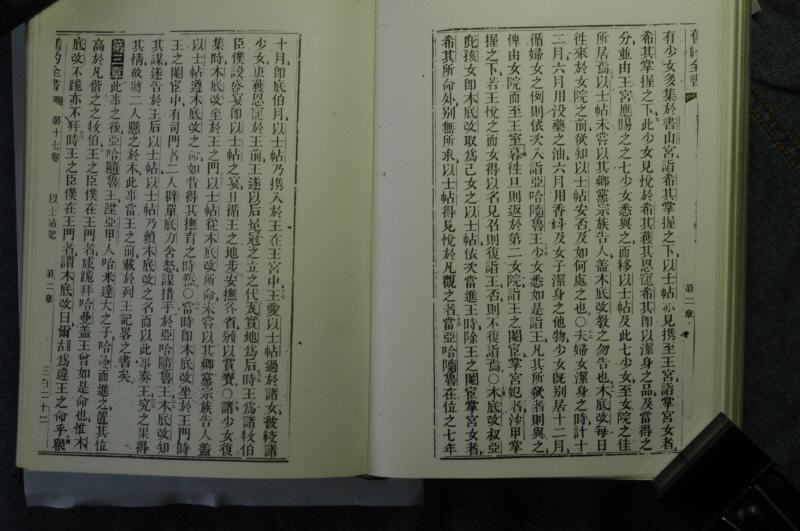 舊約全書
第二章
有少女多集於書山宮、詣希其掌握之下、以士帖亦見攜至王宮、詣掌宮女者
希其掌握之下、此少女見悅於希其、獲其恩誼、希其卽以潔身之品、及當得之
分、並由王宮應賜之之七少女、悉與之、而移以士帖及此七少女、至女院之佳
所居焉、以士帖未嘗以其鄉黨宗族告人、蓋木底改教之勿告也、木底改每日
往來於女院之前、欲知以士帖安否、及如何處之也、○夫婦女潔身之時、計十
二月、六月用沒藥之油、六月用香料、及女子潔身之他物、少女旣別居十二月、
循婦女之例、則依次入詣亞哈隨魯王、少女悉如是詣王、凡其所欲者則與之、
俾由女院而至王室、暮往、旦則返於第二女院、詣王之閹宦掌宮妃者沙甲掌
握之下、若王悅之、而女得以名見召、則復詣王、否則不復詣焉、○木底改叔亞
庇孩女、卽木底改取爲己女之以士帖、依次當進王時、除王之閹宦、掌宮女者
希其所命外、別無所求、以士帖得見悅於凡觀之者、當亞哈隨魯在位之七年
十月、卽底伯月、以士帖乃攜入於王、在王宮中、王愛以士帖過於諸女、彼較諸
少女、更獲恩誼於王前、王遂以后冕冠之、立之代瓦實地爲后、時王爲諸牧伯
臣僕設盛宴、卽以士帖之宴、且循王之地步、安撫各省、頒以賞賚、○諸少女復
集時、木底改坐於王之門、以士帖從木底改所命、未嘗以其鄉黨宗族告人、蓋
以士帖遵木底改之命、如昔得其撫育之時然、○當時卽木底改坐於王門時、
王之閹宦中、有司門者二人、辟單底力舍怒、謀措手於亞哈隨魯王、木底改知
其謀、遂告於王后以士帖、以士帖乃賴木底改之名、而以此事奏王、究之果得
其情、故將二人懸之於木、此事當王之前、載於列王記畧之書矣、
第三章 此事之後、亞哈隨魯王陞亞甲人哈米達大之子哈曼、而進之、置其位
高於凡偕之之牧伯、王之臣僕在王門者、咸跪拜哈曼、蓋王曾如是命也、惟木
底改不跪亦不拜、時王之臣僕在王門者、謂木底改曰、爾胡爲違王之命乎、衆
舊約全書
第十七卷
以士帖記
第二章
三百二十二